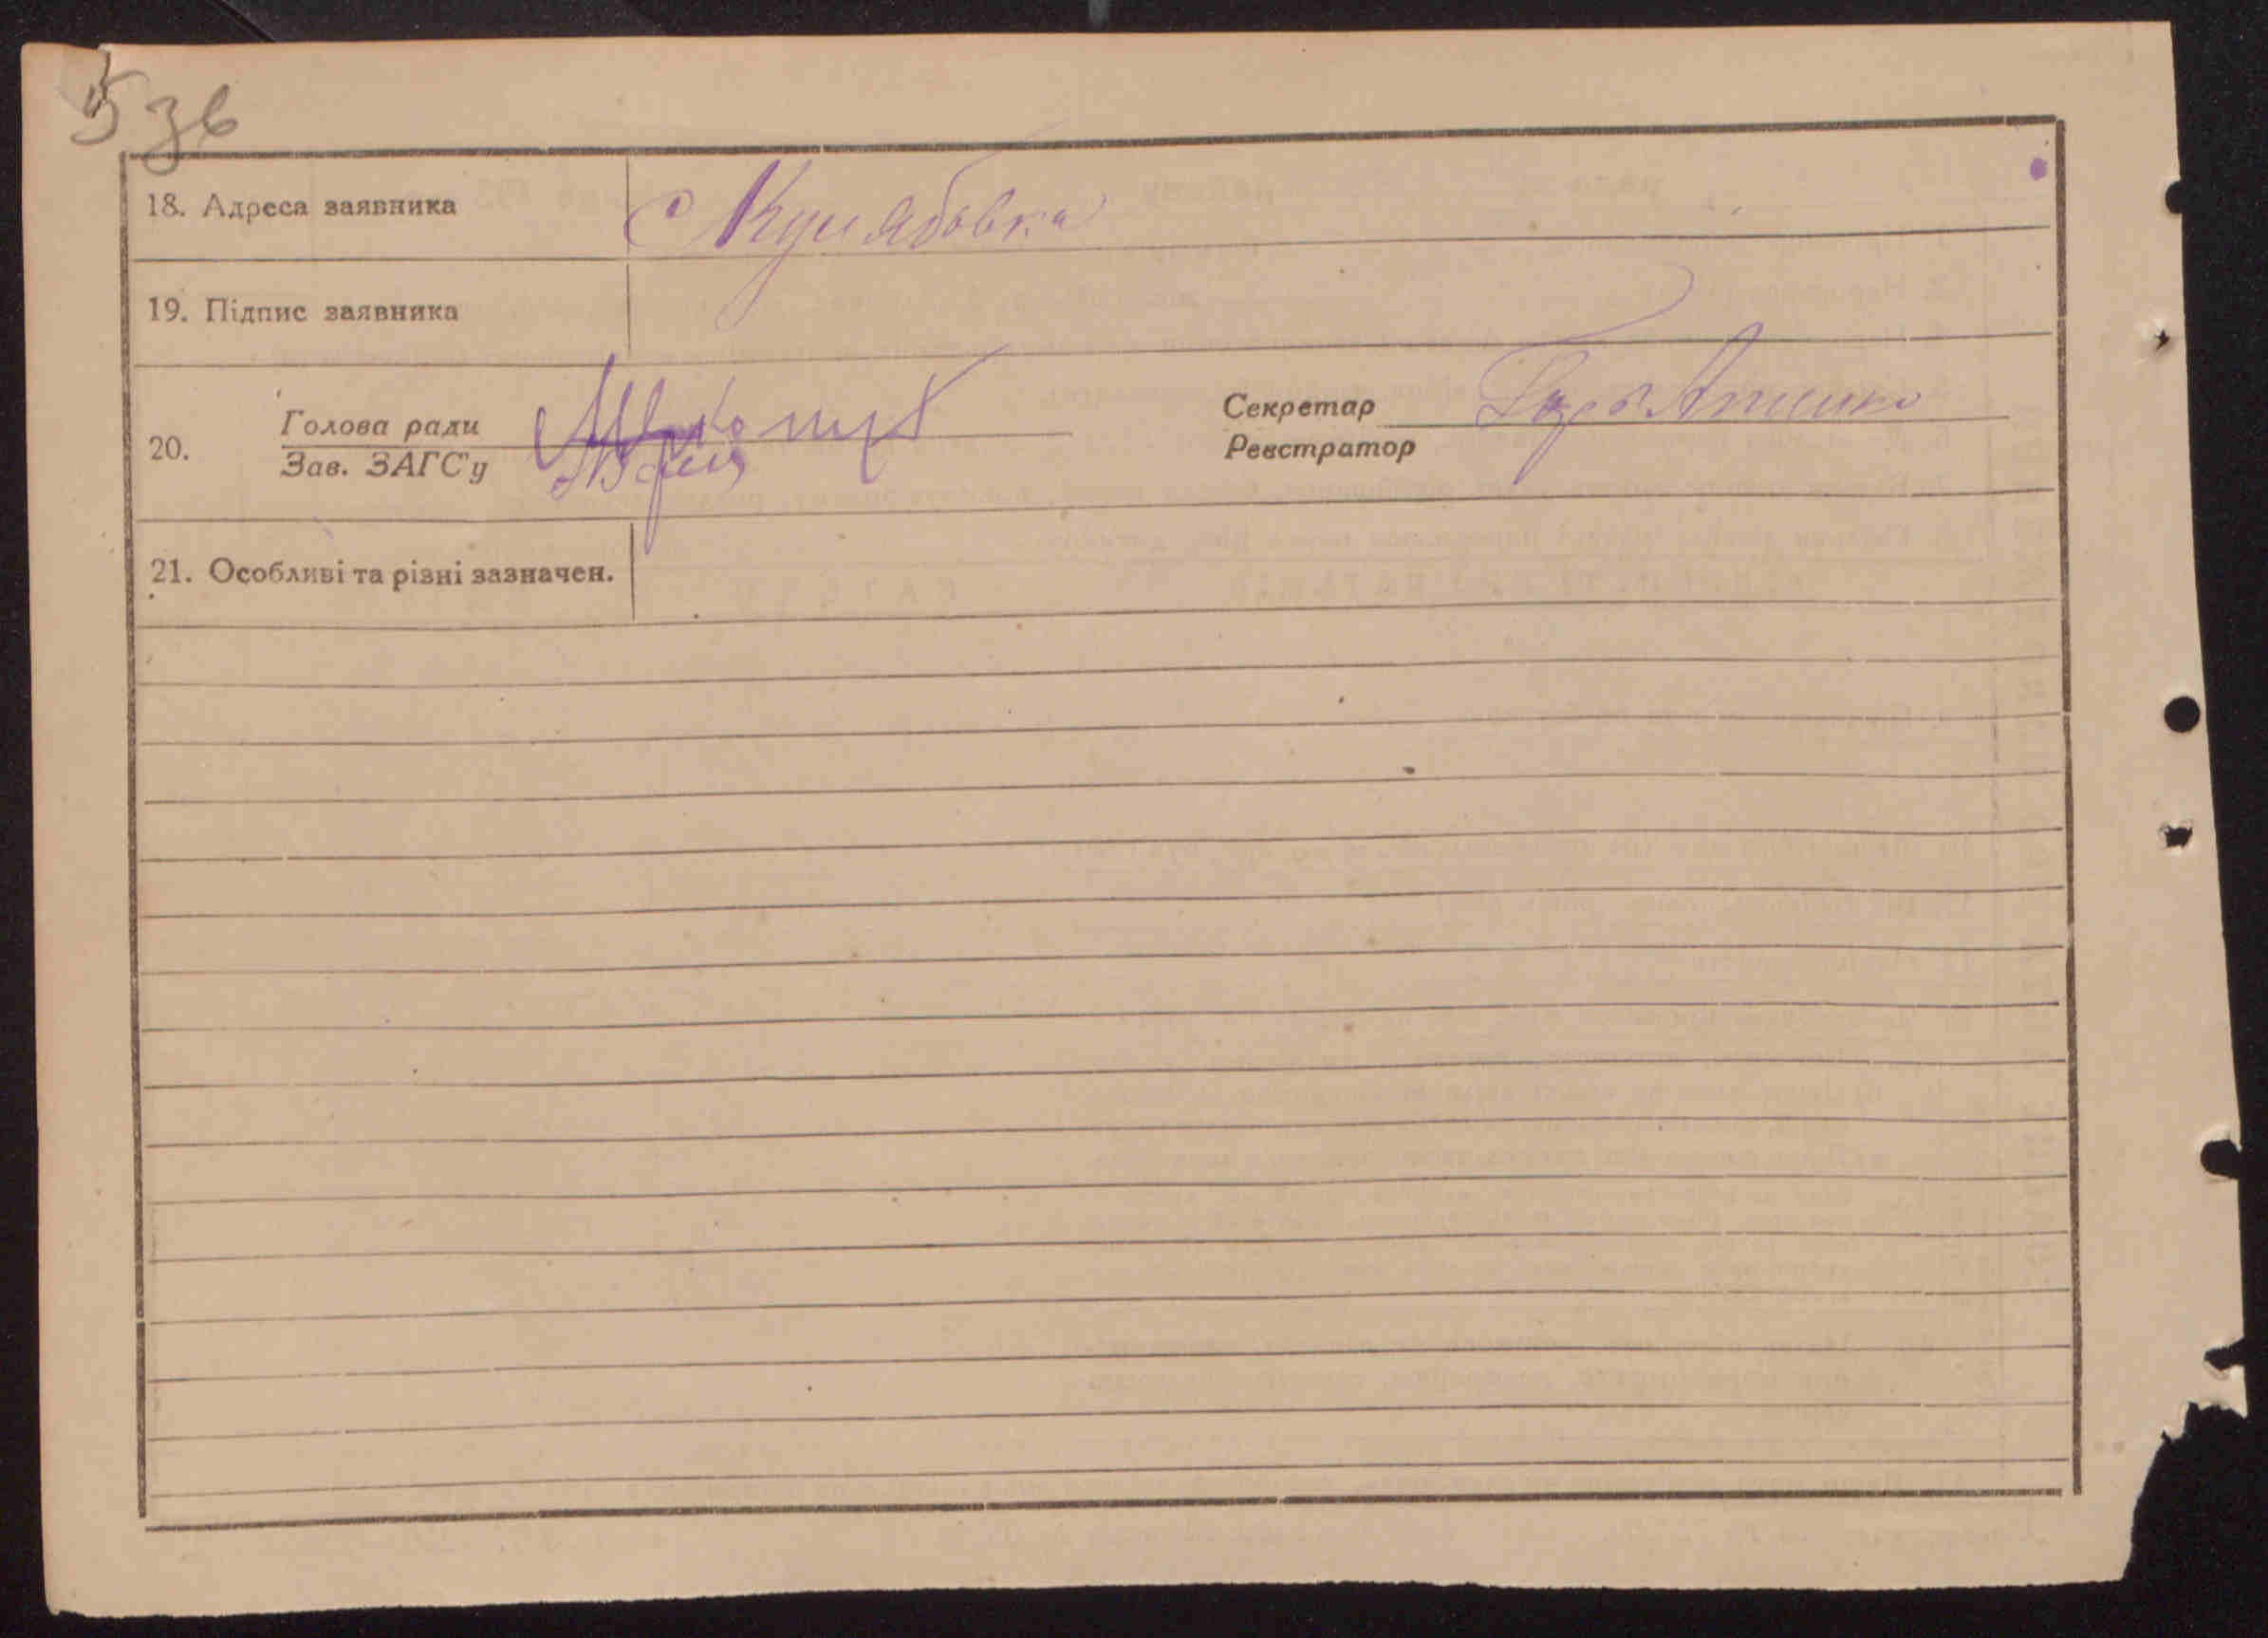 5 зв
18. Адреса заявника с Кулябовка
19. Підпис заявника
20. Голова ради Секретар
Зав. ЗАГС'у Реєстратор
21. Особливі та різні зазначен.